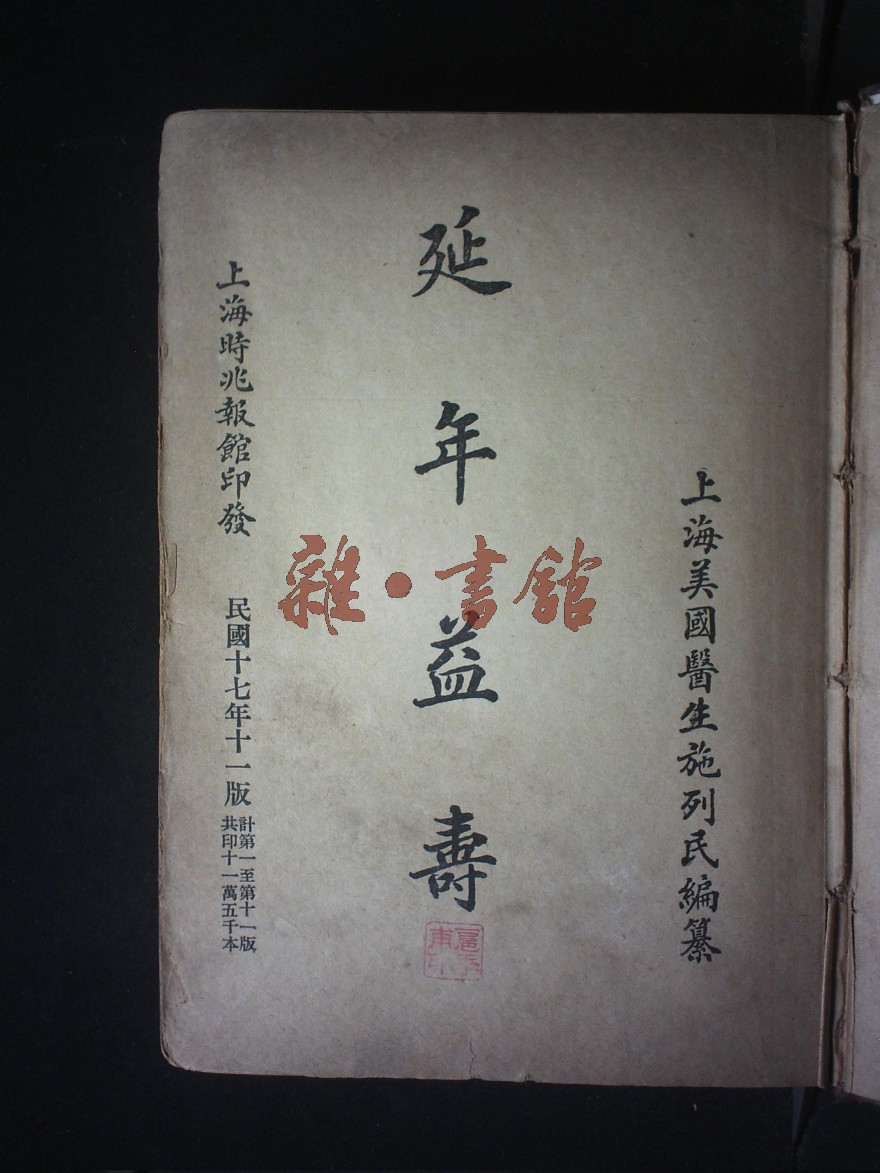 上海美國醫生施列民編纂
延年益壽
上海時兆報館印發
民國十七年十一版
計第一至第十一版
共印十一萬五千本
雜·書館